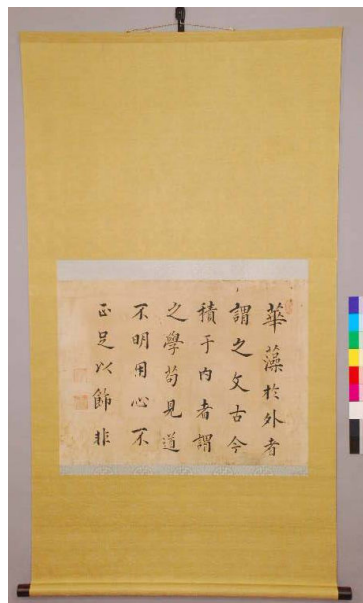 華藻於外者
謂之文古今
積于内者謂
之學苟見道
不明用心不
正足以餙非